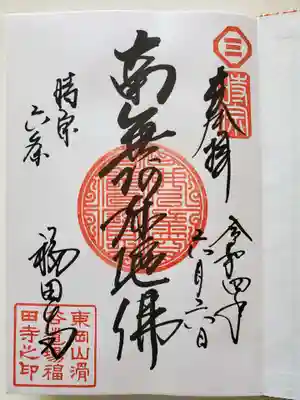 三
時宗
奉拝
令和四年
南無阿弥陀佛
時宗
六条
福田寺
東岡山滑
谷道場福
田寺之印